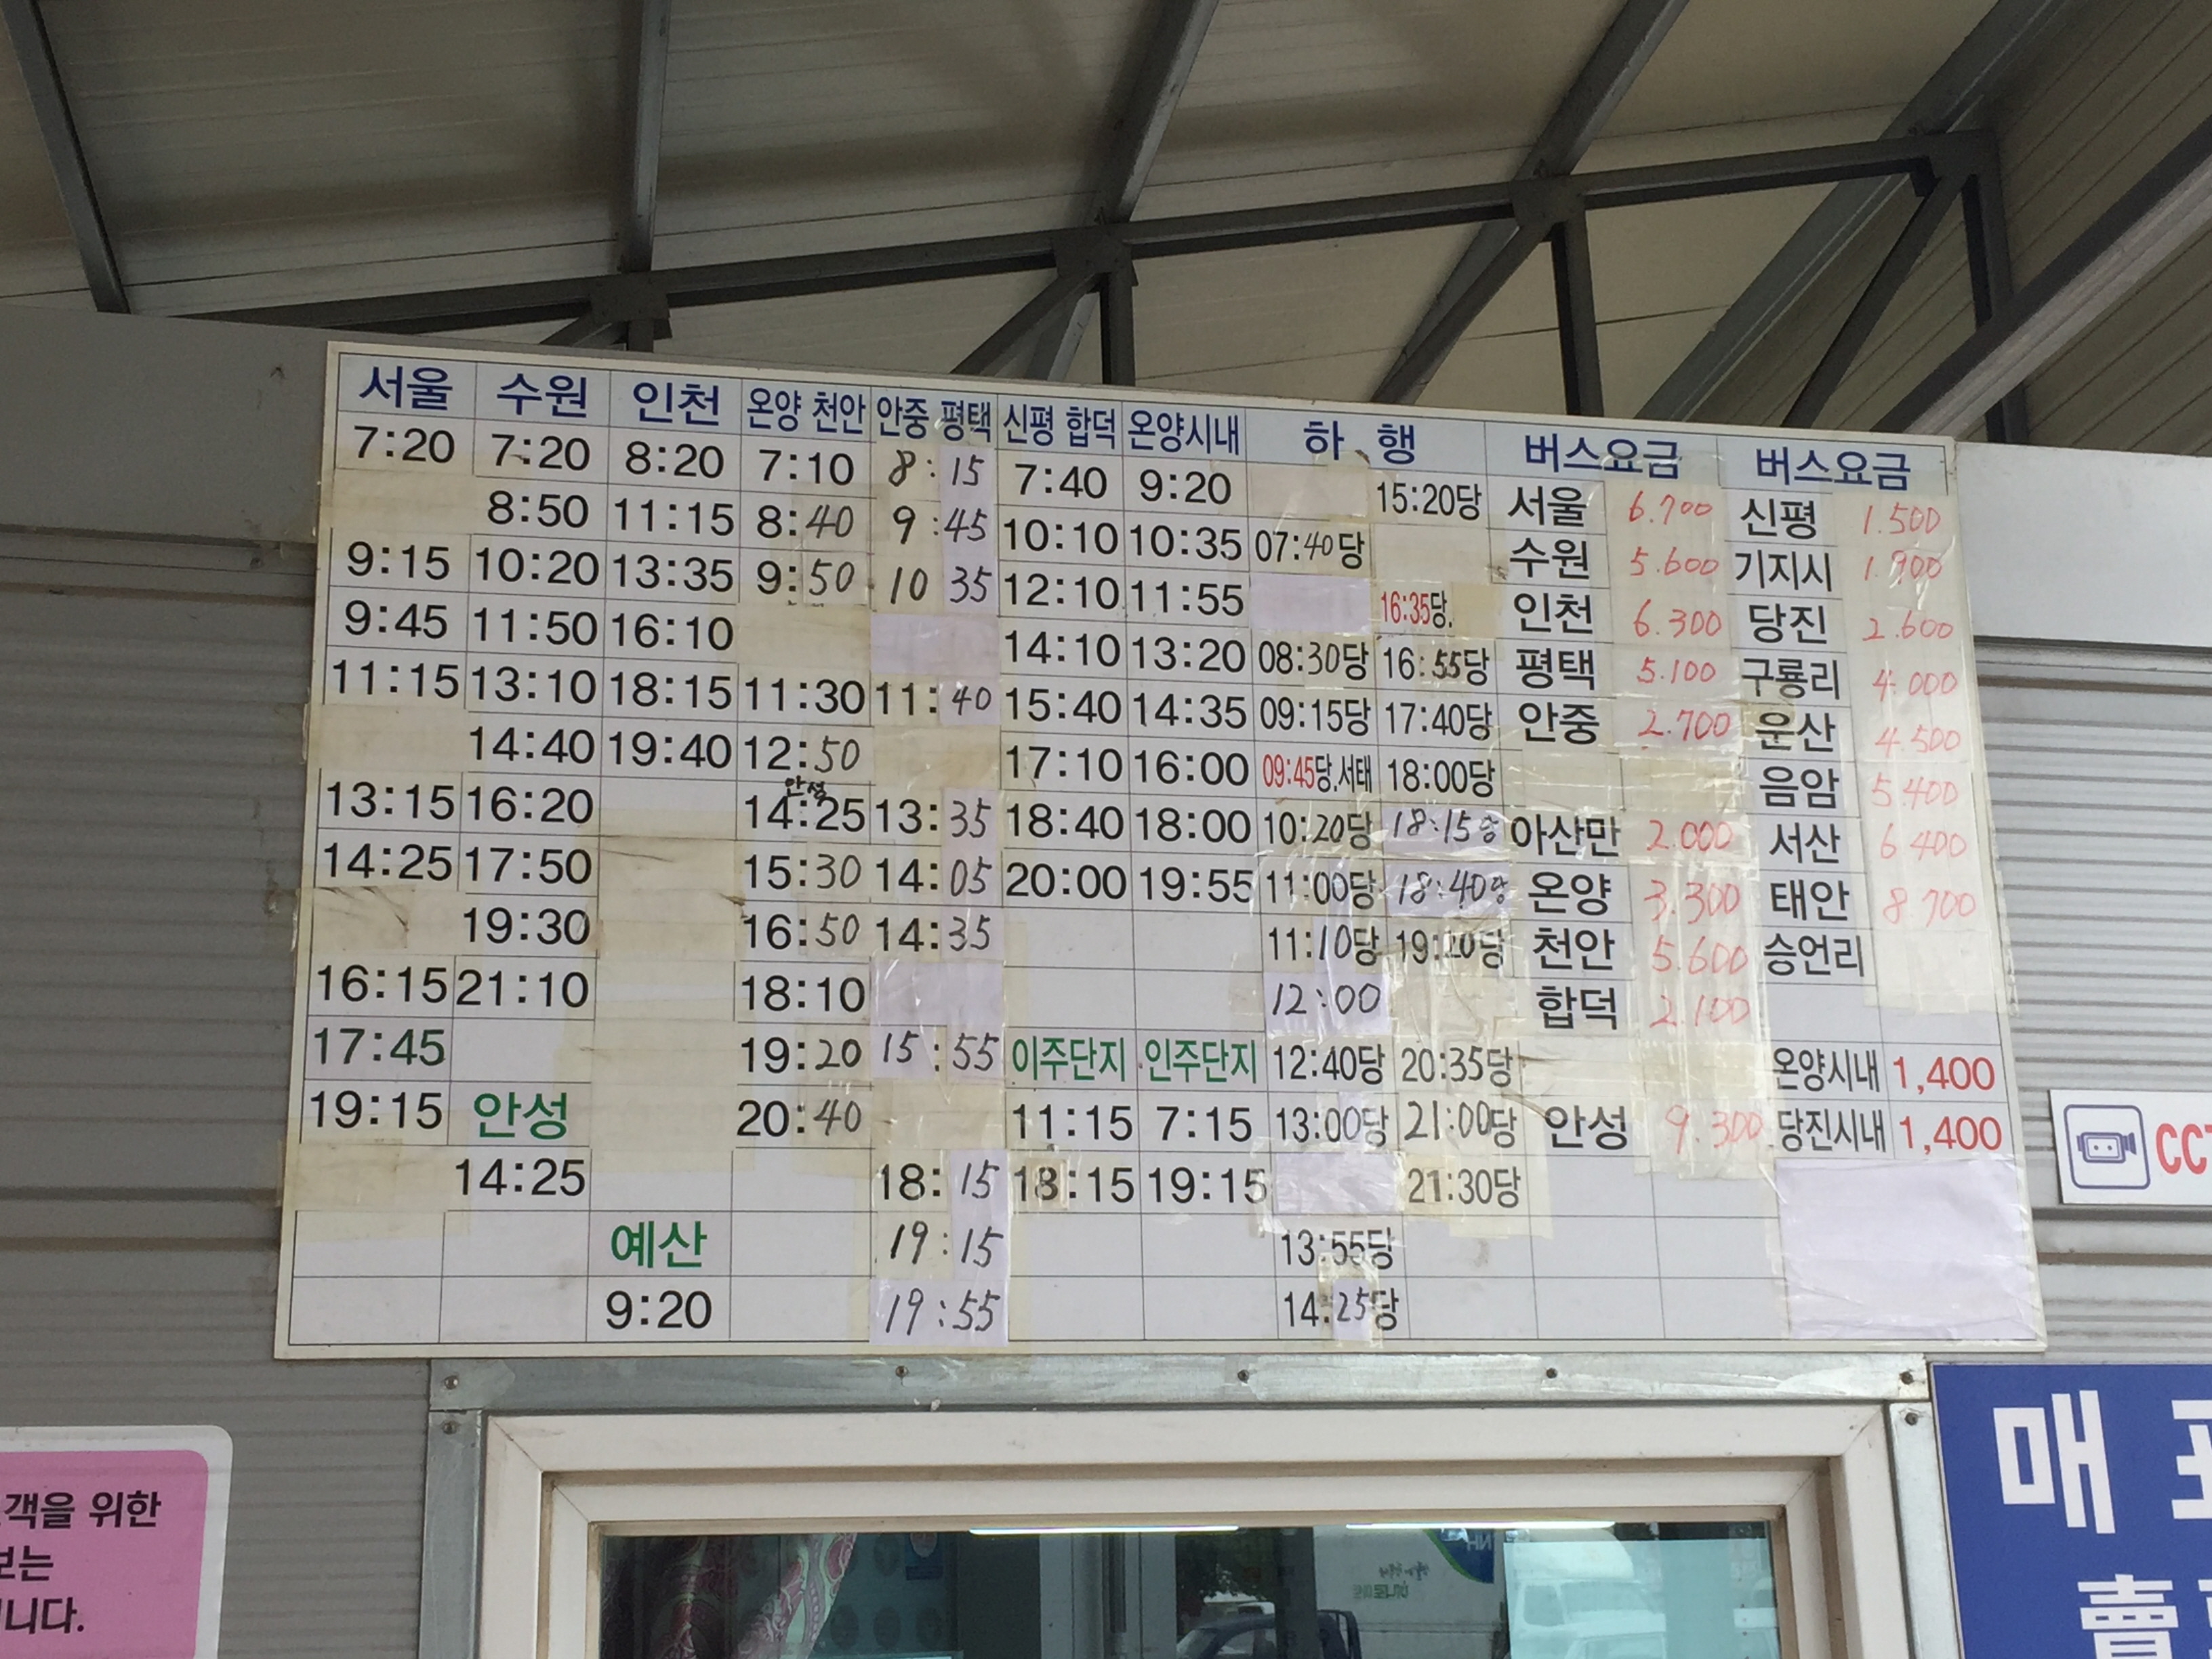 서울 수원 인천 온양 천안 안중 평택 신평 합덕 온양시내 하 행 버스요금 버스요금
7:20 7:20 8:20 7:10 8:15 7:40 9:20 15:20당 서울 6.700 신평 1.500
8:50 11:15 8:40 9:45 10:10 10:35 07:40당 수원 5.600 기지시 1.900
9:15 10:20 13:35 9:50 10 35 12:10 11:55 16:35당. 인천 6.300 당진 2.600
9:45 11:50 16:10 14:10 13:20 08:30당 16:55당 평택 5.100 구룡리 4.000
11:15 13:10 18:15 11:30 11:40 15:40 14:35 09:15당 17:40당 안중 2.700 운산 4.500
14:40 19:40 12:50 17:10 16:00 09:45당.서태 18:00당 음암 5.400
안성
13:15 16:20 14:25 13:35 18:40 18:00 10:20당 18:15당 아산만 2.000 서산 6.400
14:25 17:50 15:30 14:05 20:00 19:55 11:00당 18:40당 온양 3.300 태안 8.700
19:30 16:50 14:35 11:10당 19:20당 천안 5.600 승언리
16:15 21:10 18:10 12:00 합덕 2.100
17:45 19:20 15:55 이주단지 인주단지 12:40당 20:35당 온양시내 1,400
19:15 안성 20:40 11:15 7:15 13:00당 21:00당 안성 9.300 당진시내 1,400
14:25 18:15 18:15 19:15 21:30당
예산 19:15 13:55당
9:20 19:55 14:25당
객을 위한
보는
니다.
매
賣
NH